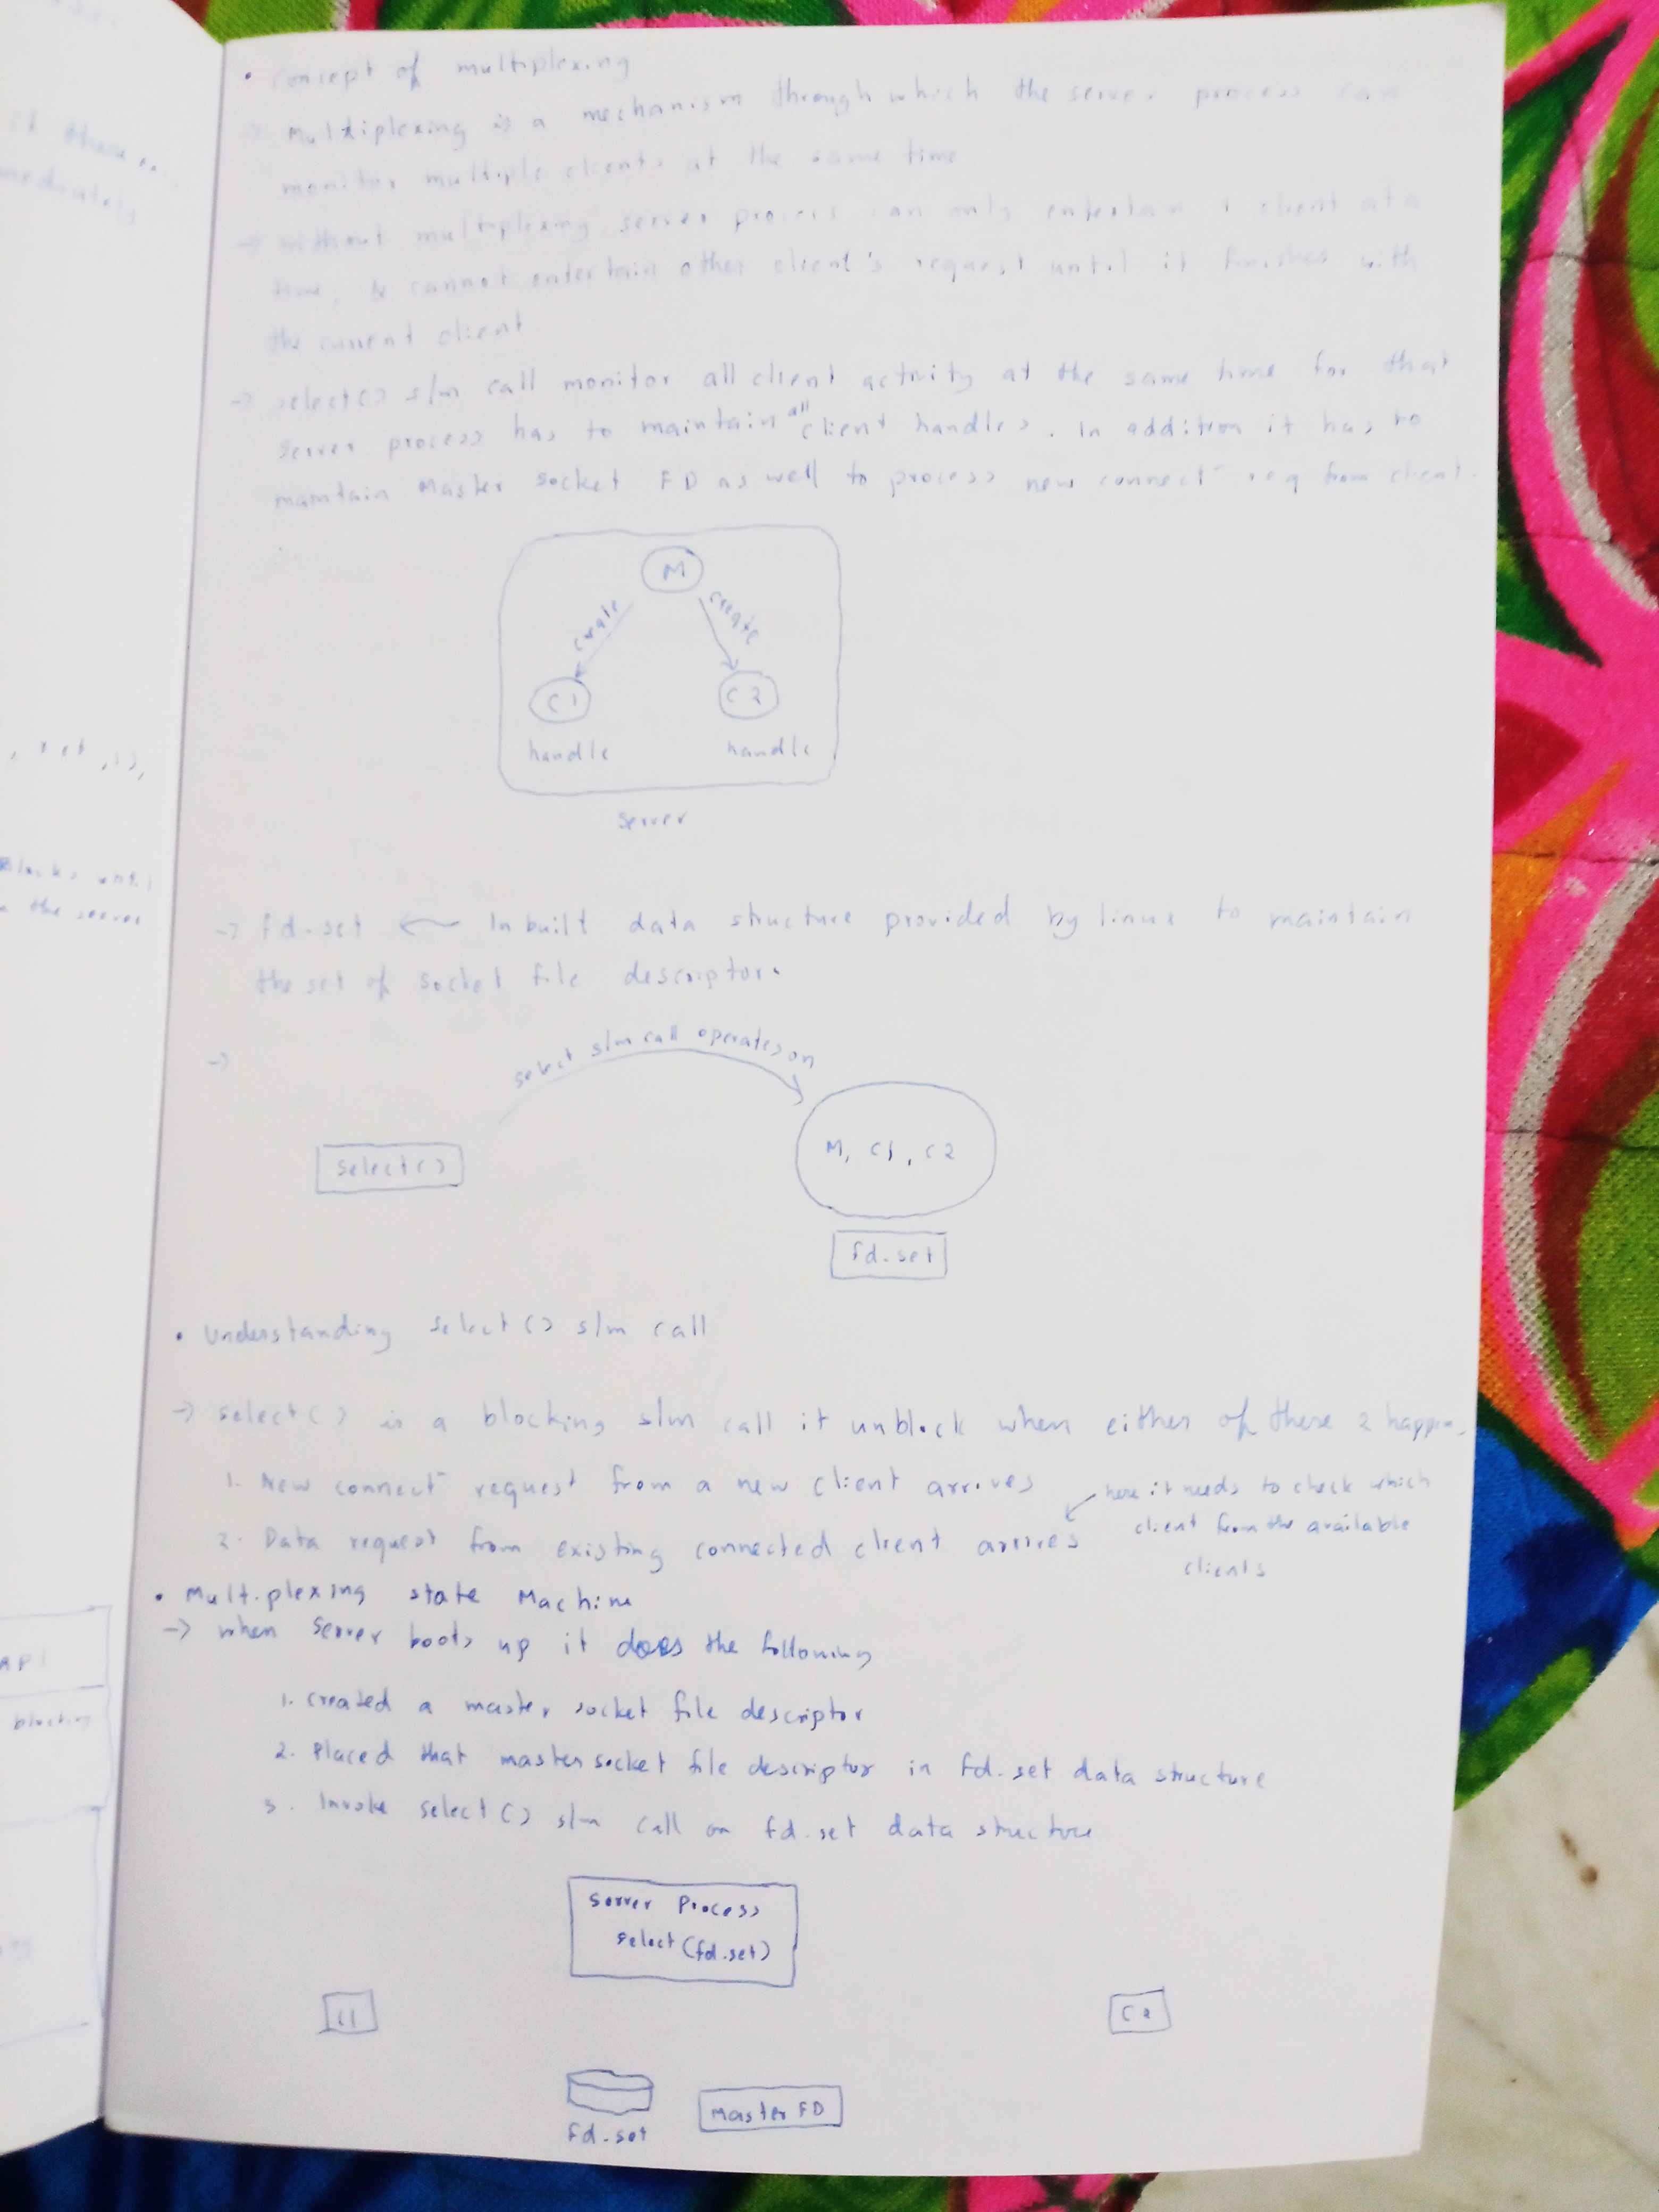 • Concept of multiplexing
→ Multiplexing is a mechanism through which the server process can
monitor multiple clients at the same time
→ without multiplexing, server process can only entertain 1 client at a
time, & cannot entertain other client's request until it finishes with
the current client
→ select() s/m call monitor all client activity at the same time for that
server process has to maintain all client handles. In addition it has to
maintain Master socket FD as well to process new connectⁿ req from client.
M
create create
C1 C2
handle handle
Server
→ fd-set ← In built data structure provided by linux to maintain
the set of socket file descriptor.
→ select s/m call operates on
select()
M, C1, C2
fd-set
• Understanding select() s/m call
→ select() is a blocking s/m call it unblock when either of there 2 happens
1. New connectⁿ request from a new client arrives
2. Data request from existing connected client arrives
← here it needs to check which
client from the available
clients
• Multiplexing state Machine
→ when server boots up it does the following
1. Created a master socket file descriptor
2. Placed that master socket file descriptor in fd-set data structure
3. Invoke select() s/m call on fd-set data structure
Server Process
select(fd-set)
C1 C2
fd-set
Master FD
it there
mediately
, ret ,1),
Blocks until
the server
API
blocking